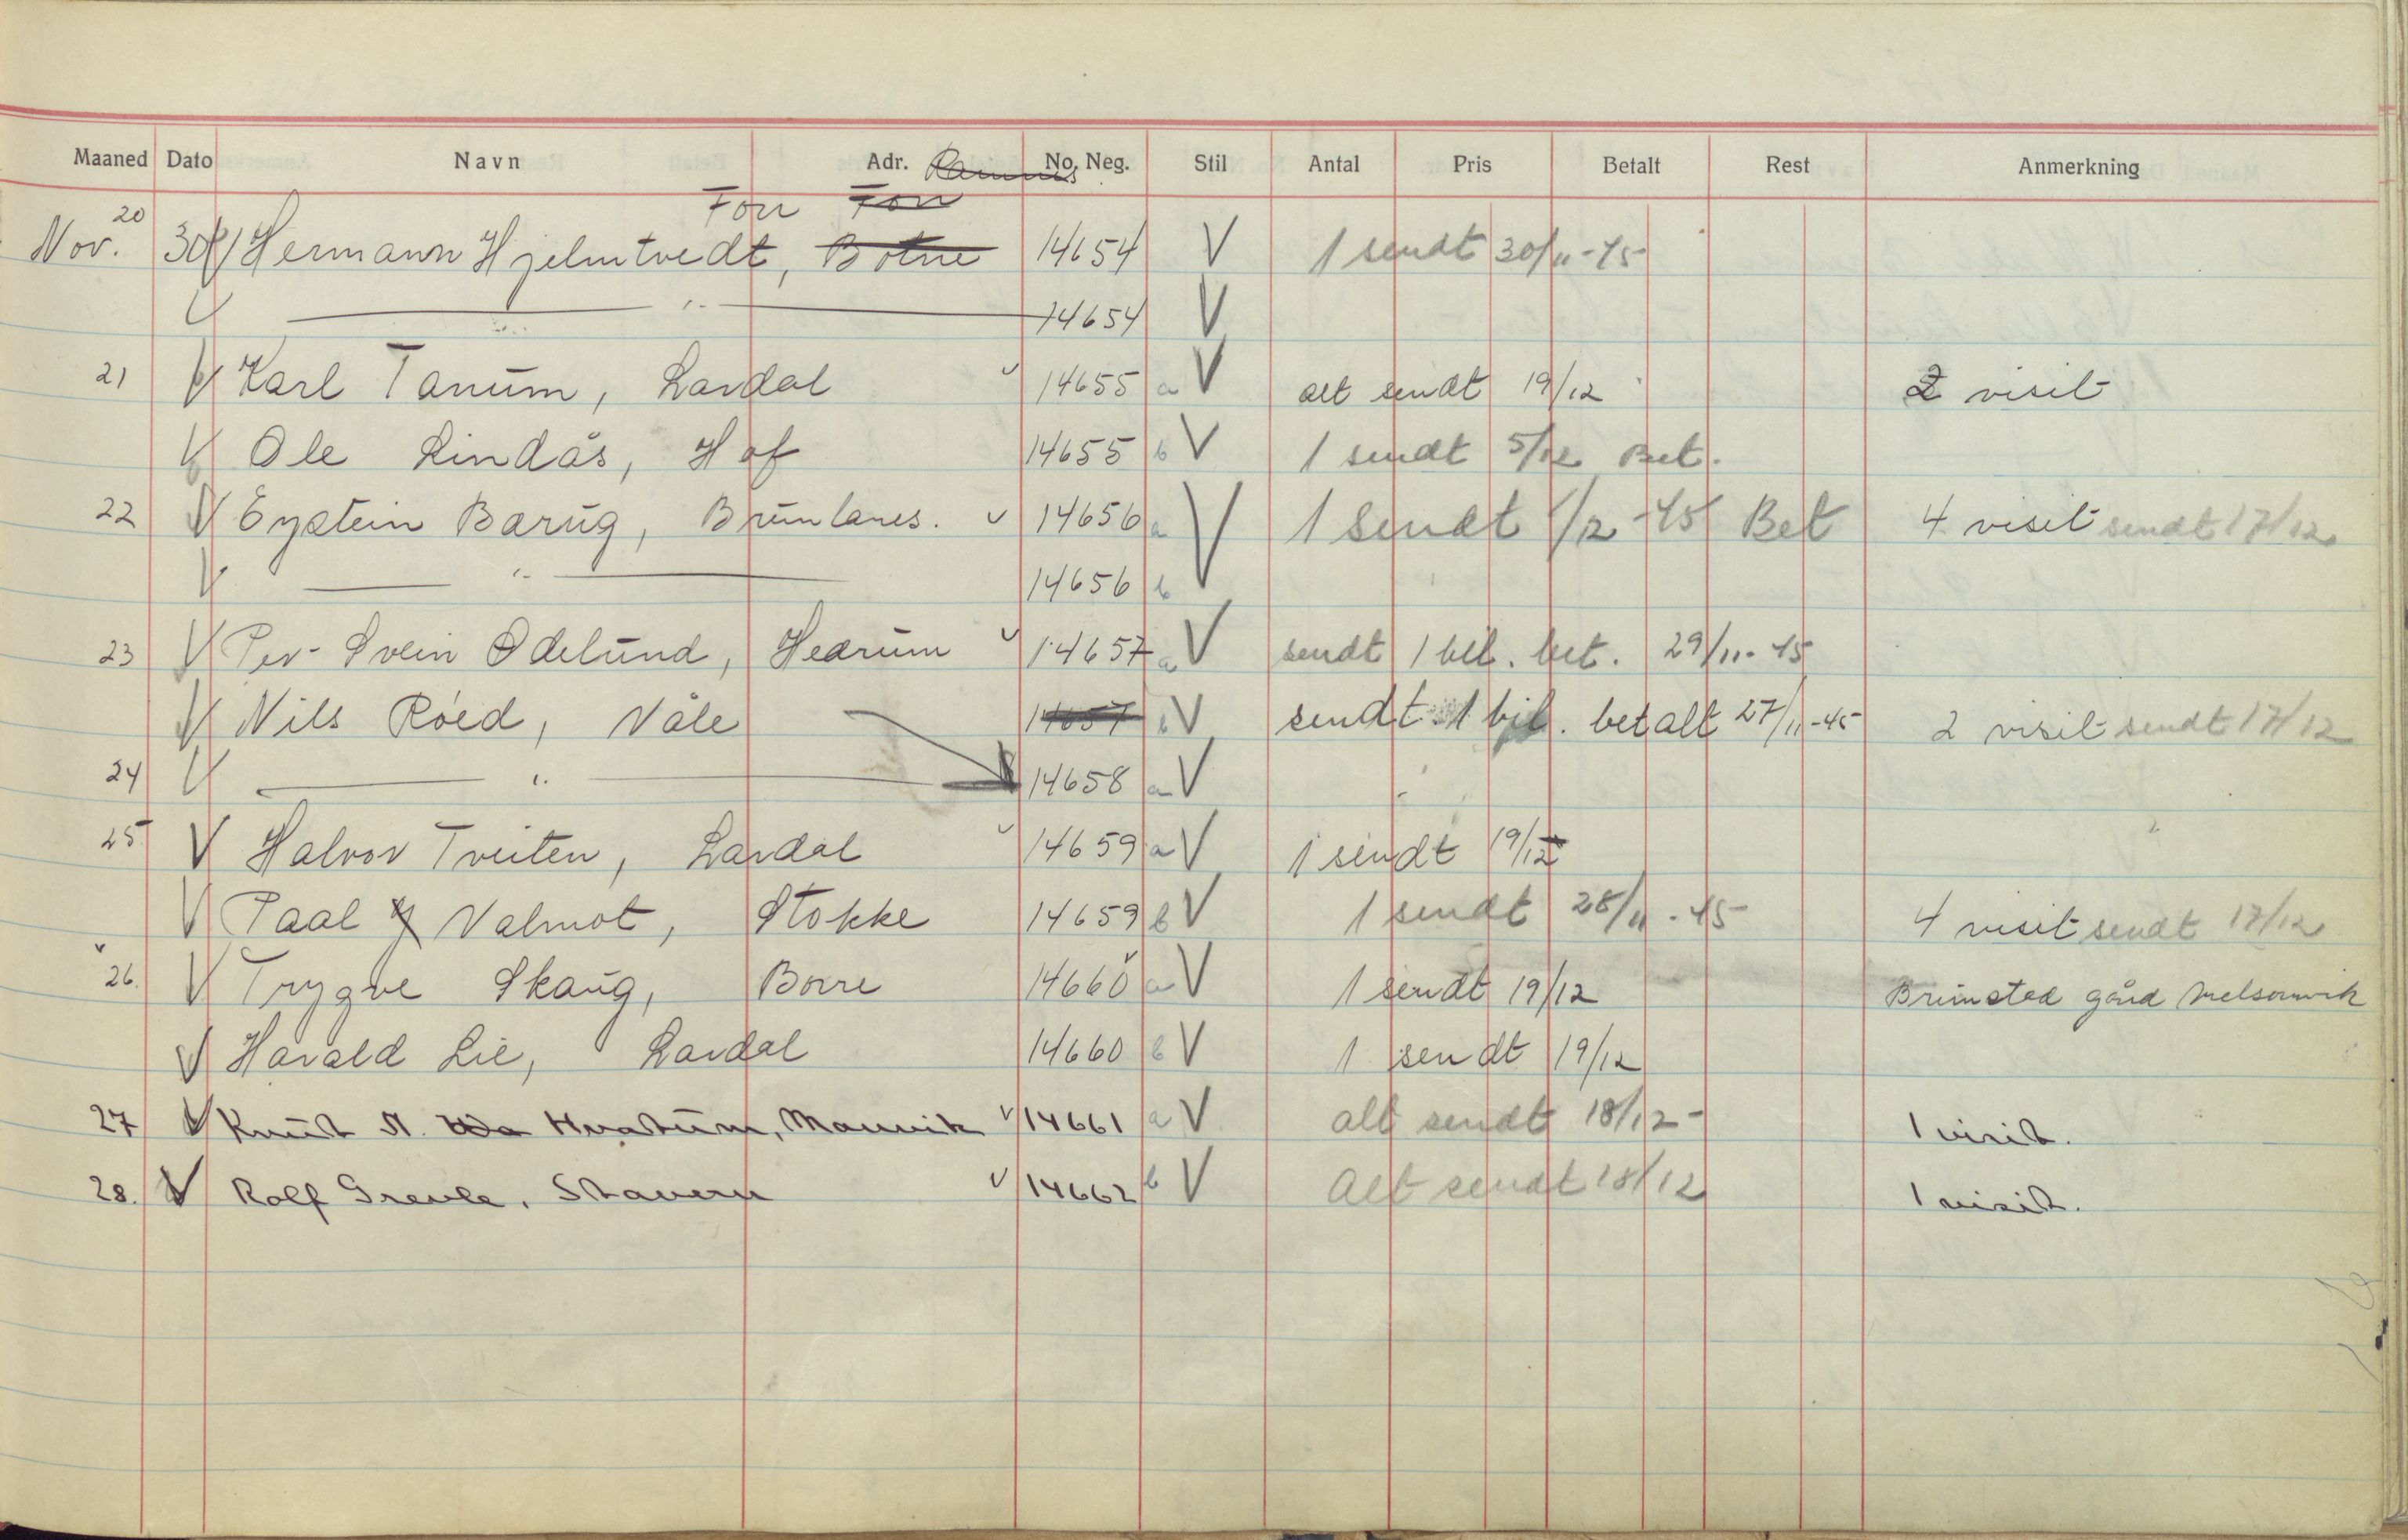 Maaned Dato Navn Adr. Ramnes No. Neg. Stil Antal Pris Betalt Rest Anmerkning
Fon Fon
Nov. 20 30/ V Hermann Hjelmtvedt, Botne 14654 V 1 sendt 30/11-45
V —— " —— 14654 V
21 V Karl Tanum, Lardal v 14655 a V alt sendt 19/12 2 visit
V Ole Lindås, Hof 14655 b V 1 sendt 5/12 Bet.
22 V Eystein Barug, Brunlanes. v 14656 a V 1 Sendt 1/12-45 Bet 4 visit sendt 17/12
V —— " —— 14656 b
23 V Per Svein Odelund, Hedrum v 14657 a V sendt 1 bil. bet. 29/11-45
V Nils Röed, Våle 14657 b V sendt 1 bil. betalt 27/11-45 2 visit sendt 17/12
24 V —— " —— 14658 a V
25. V Halvor Tveiten, Lardal v 14659 a V 1 sendt 19/12
V Paal Valmot, Stokke 14659 b V 1 sendt 28/11-45 4 visit sendt 17/12
26. V Trygve Skaug, Borre 14660 a V 1 sendt 19/12 Brimstad gård Melsomvik
V Harald Lie, Lardal 14660 b V 1 sendt 19/12
27 V Knut A. Hvatum, Manvik v 14661 a V alt sendt 18/12- 1 visit.
28. V Rolf Grevle, Stavern v 14662 b V Alt sendt 18/12 1 visit.